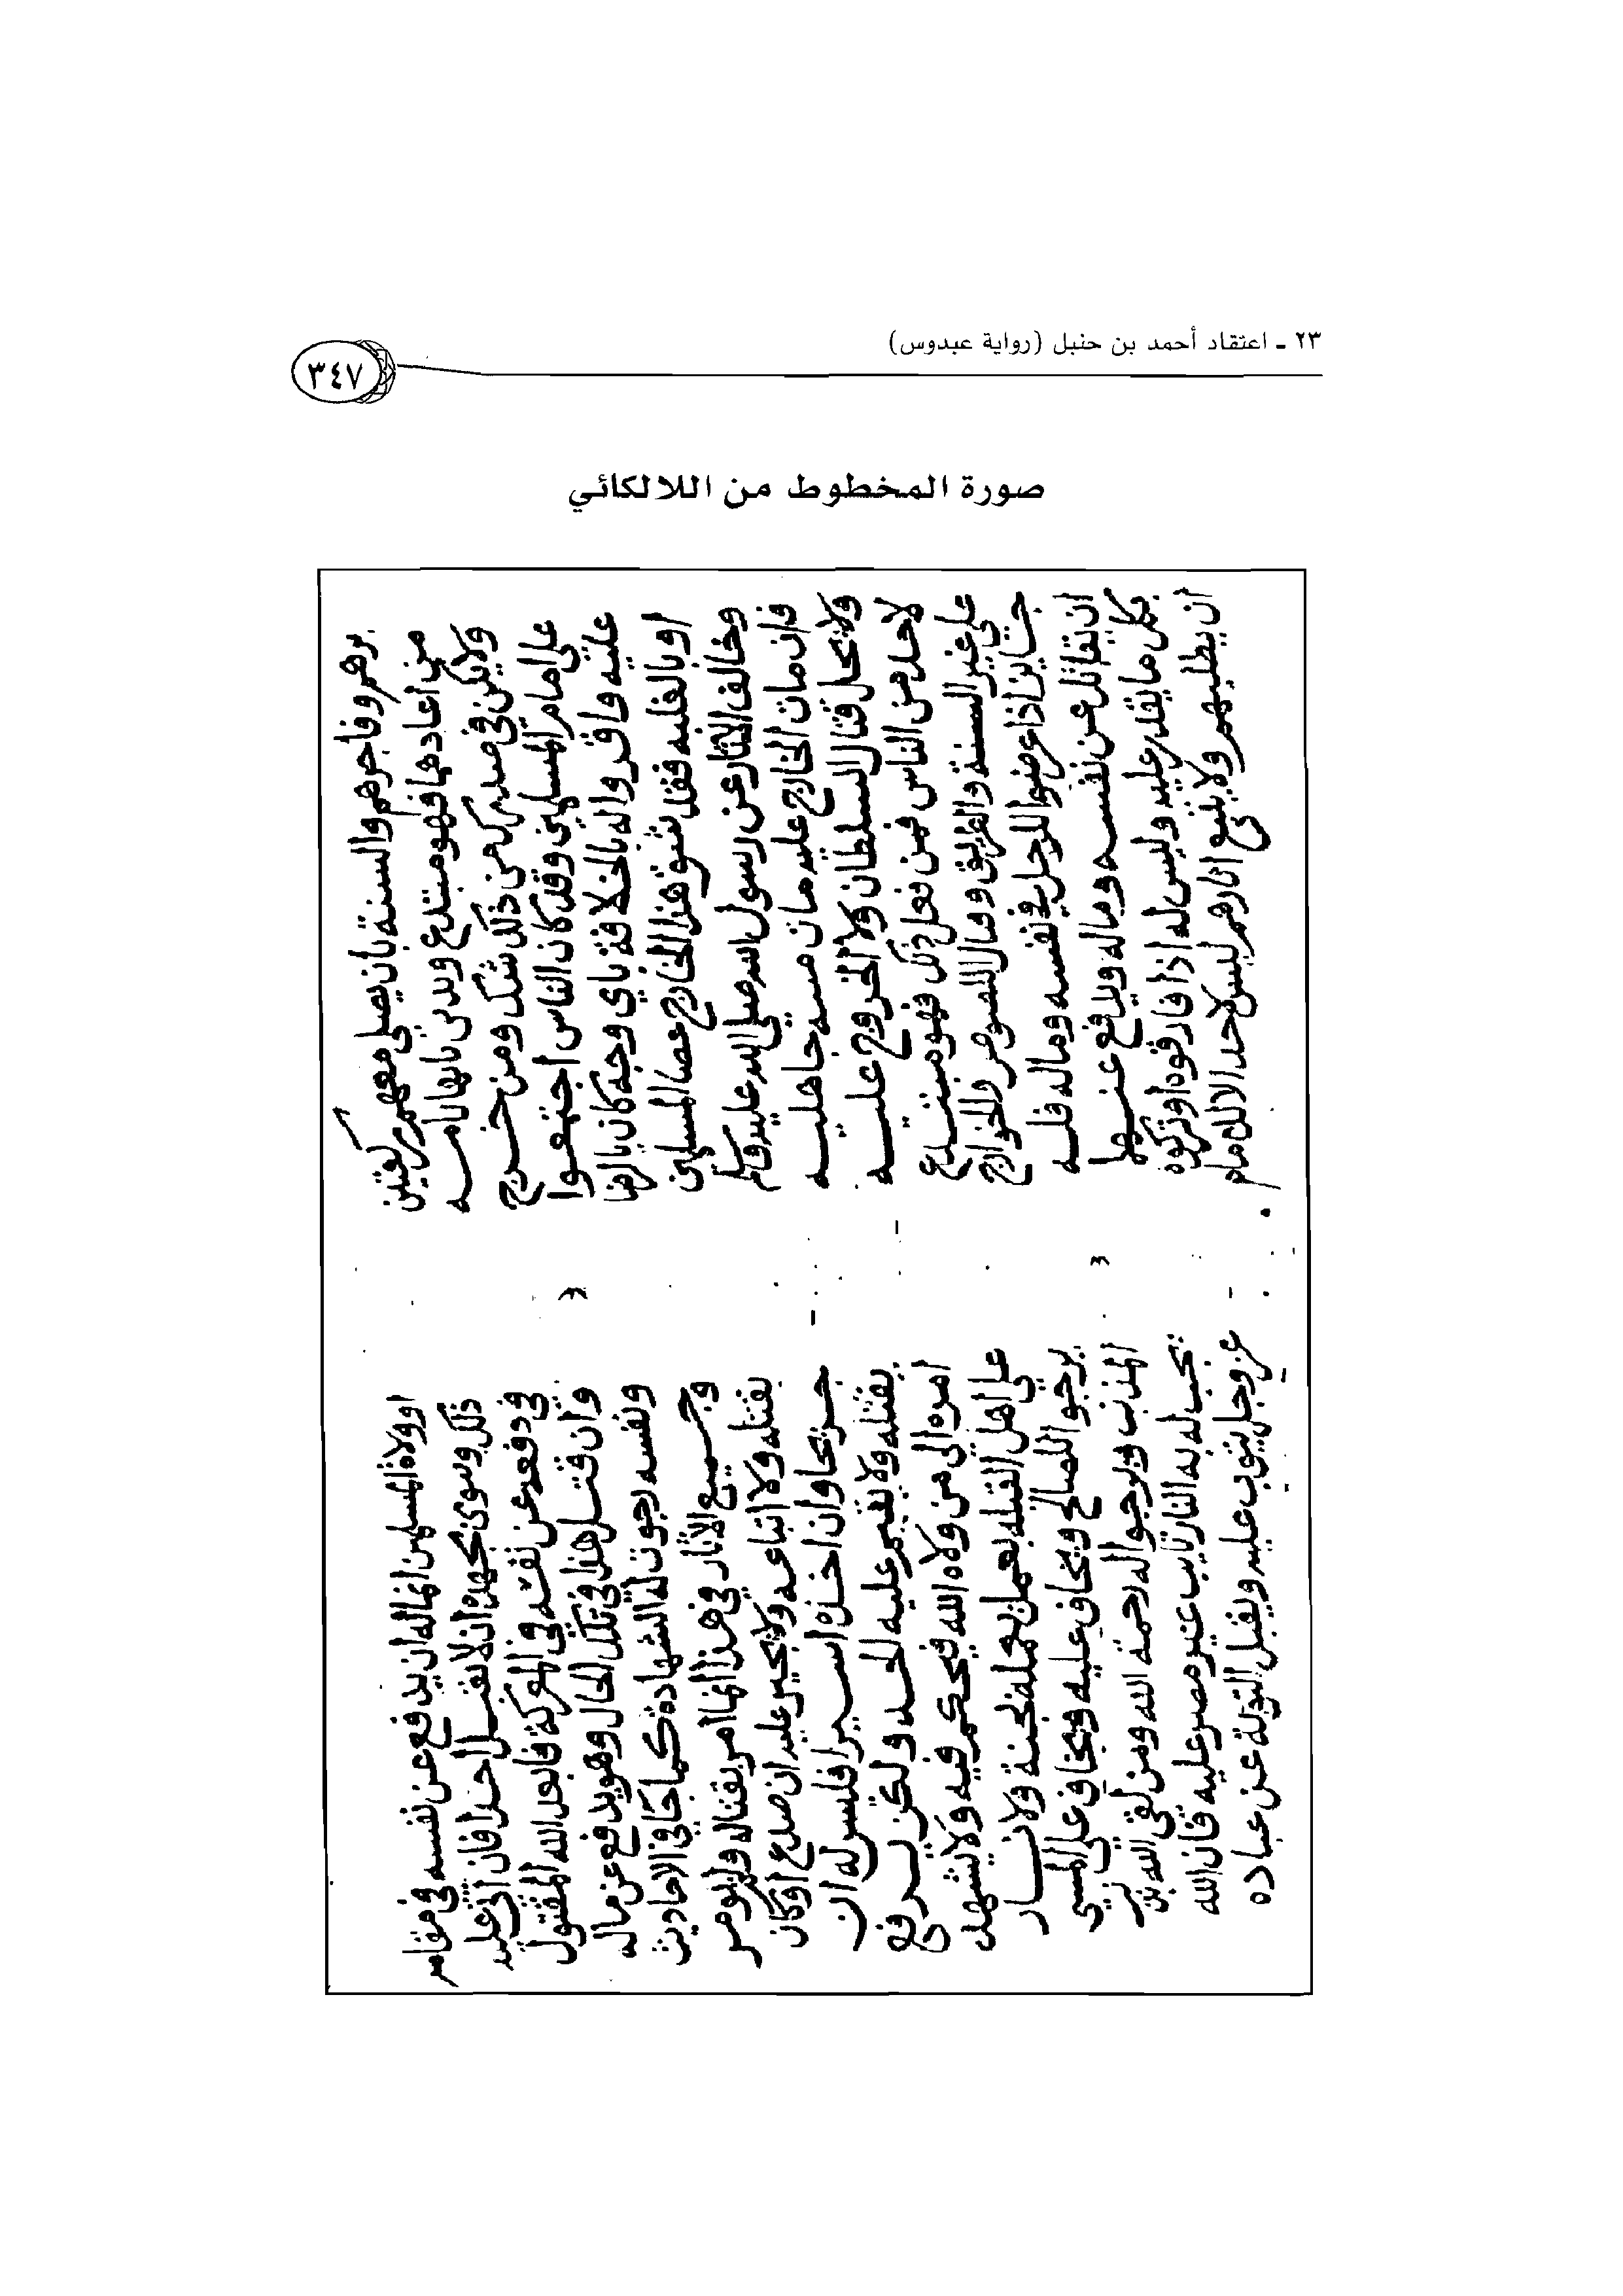 ٢٣ ـ اعتقاد أحمد بن حنبل (رواية عبدوس)
٣٤٧
صورة المخطوط من اللالكائي
برهم وفاجرهم والسنة بأن يصلي معهم ركعتين
من اعادها فهو مبتدع وبدين بانها تامه
ولا يكن في صدرك من ذلك شك ومن خرج
على امام المسلمين وقد كان الناس اجتمعوا
عليه واقروا له بالخلافة باي وجه كان بالرضا
او بالغلبه فقد شق هذا الخارج عصا المسلمين
وخالف الاثار عن رسول الله صلى الله عليه وسلم
فان مات الخارج عليه مات ميته جاهليه
ولا يحل قتال السلطان ولا الخروج عليه
لاحد من الناس فمن فعل ذلك فهو مبتدع
على غير السنة والطريق وقتال اللصوص والخوارج
جايز اذا عرضوا للرجل في نفسه وماله فله
ان يقاتل عن نفسه وماله ويدفع عنهما
بكل ما يقدر عليه وليس له اذا فارقوه او تركوه
ان يطلبهم ولا يتبع اثارهم ليس لاحد الا للامام
او ولاة المسلمين انما له ان يدفع عن نفسه في مقامه
ذلك وينوي بجهده ان لا يقتل احدا فان اتى عليه
في دفعه عن نفسه في المعركة فابعد الله المقتول
وان قتل هذا في تلك الحال وهو يدفع عن ماله
ونفسه رجوت له الشهادة كما جا في الاحاديث
وجميع الاثار في هذا انما امر بقتاله ولم يومر
بقتله ولا اتباعه ولا يجيز عليه ان صرع او كان
جريحا وان اخذه اسيرا فليس له ان
يقتله ولا يقيم عليه الحد ولكن يرفع
امره الى من ولاه الله فيحكم فيه ولا يشهد
على اهل القبله بعمل يعمله بجنة ولا نار
يرجوا للصالح ويخاف عليه ويخاف على المسي
المذنب ويرجوا له رحمة الله ومن لقي الله بذنب
يجب له به النار تايب غير مصر عليه فان الله
عز وجل يتوب عليه ويقبل التوبة عن عباده